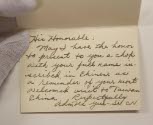 His Honorable:
May I have the honor
to present to you a chop
with your full name in-
scribed in Chinese as
a reminder of your most
welcomed visit to Taiwan
China. Respectfully
Admiral